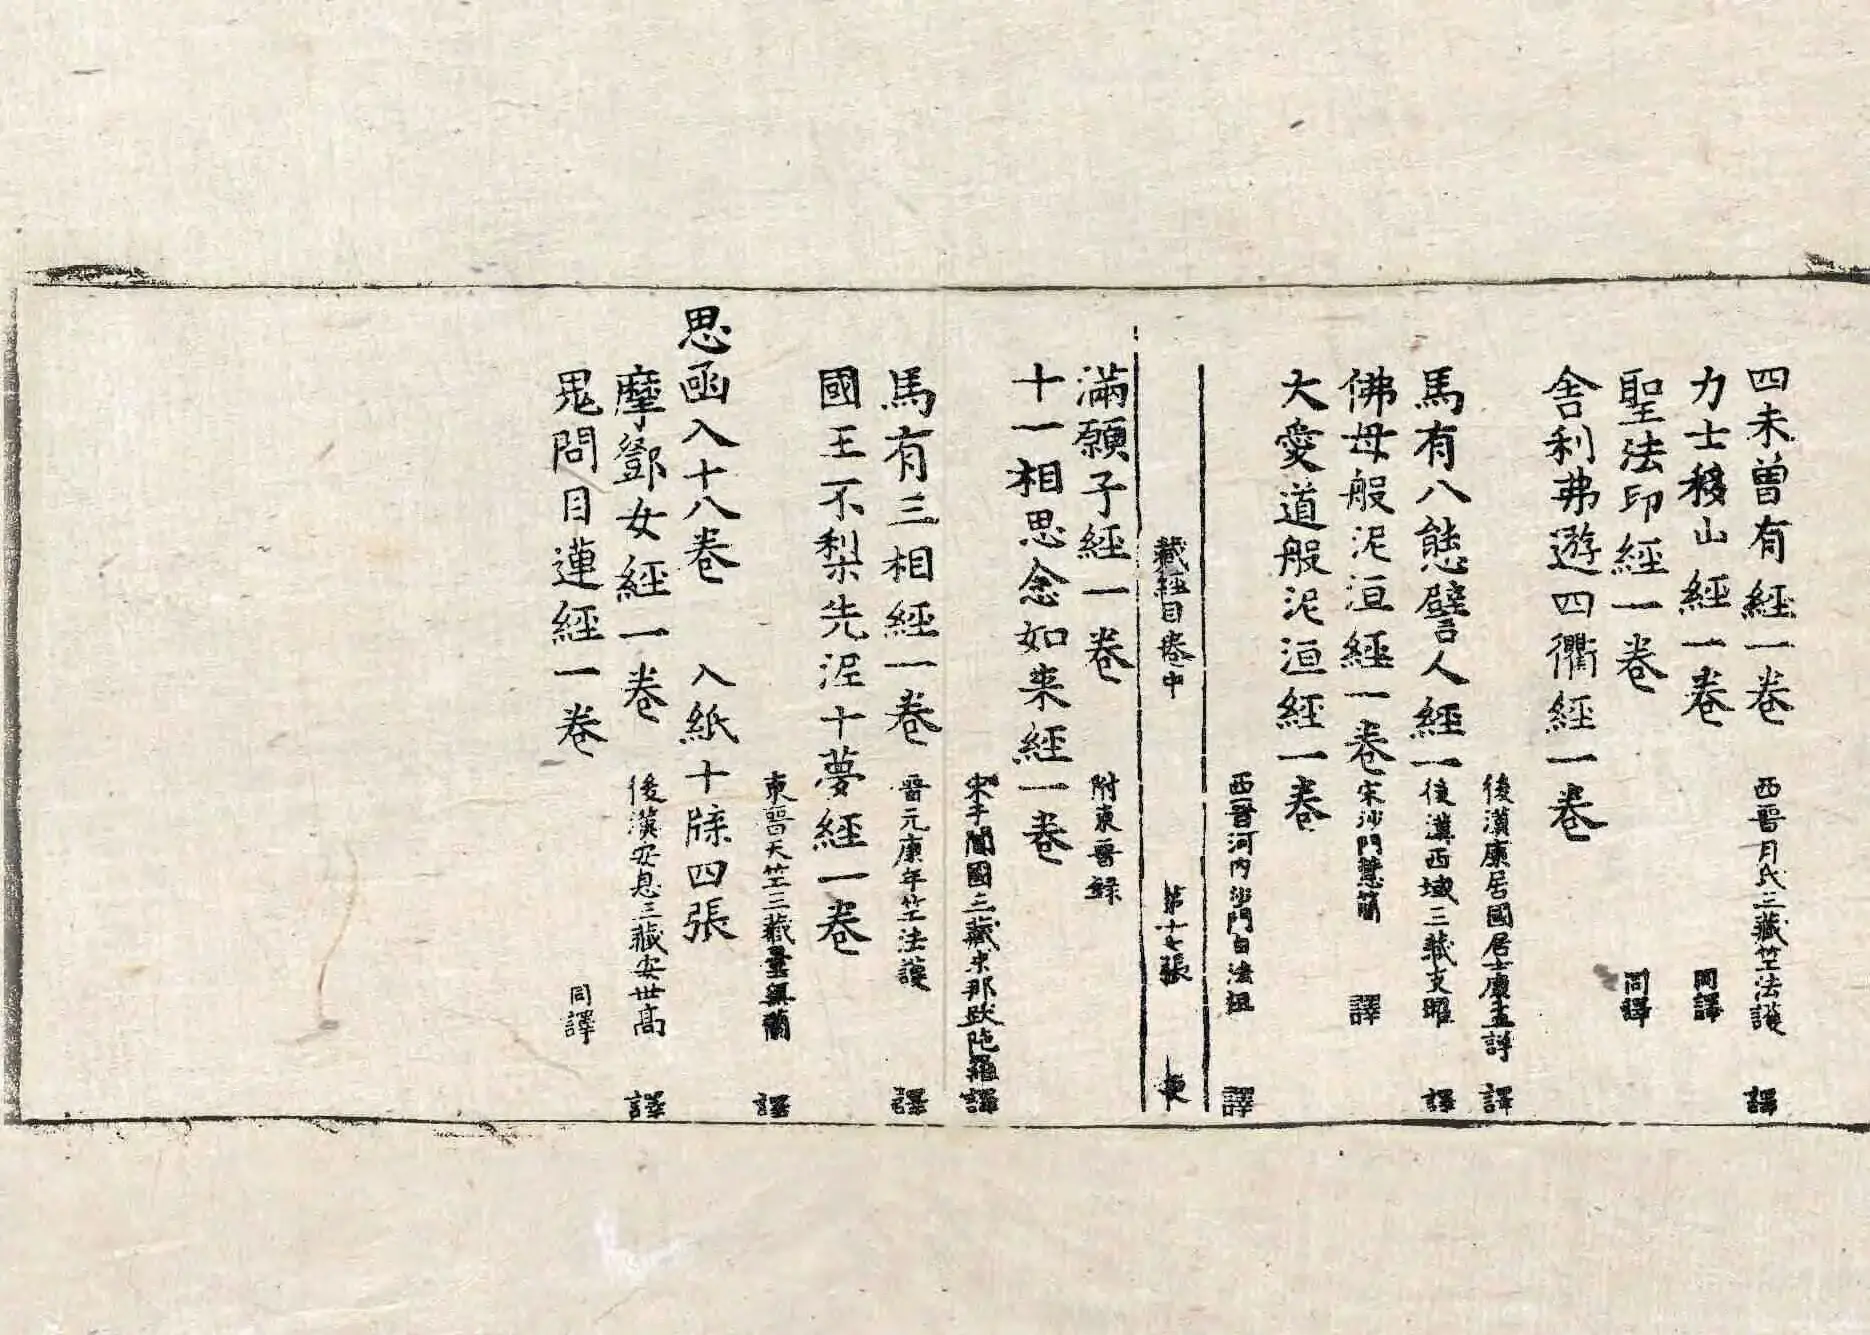 四未曾有經一卷 西晉月氏三藏竺法護 譯
力士移山經一卷 同譯
聖法印經一卷 同譯
舍利弗遊四衢經一卷
後漢康居國居士康孟詳 譯
馬有八態譬人經一 後漢西域三藏支曜 譯
佛母般泥洹經一卷 宋沙門慧簡 譯
大愛道般泥洹經一卷
西晉河内沙門白法祖 譯
藏經目卷中 第十七張
滿願子經一卷 附東晉録
十一相思念如来經一卷
宋于闐國三藏求那跋陁羅譯
馬有三相經一卷 晉元康年竺法護 譯
國王不梨先泥十夢經一卷
東晉天竺三藏曇無蘭 譯
思函入十八卷 入紙十牒四張
摩鄧女經一卷 後漢安息三藏安世高 譯
鬼問目蓮經一卷 同譯